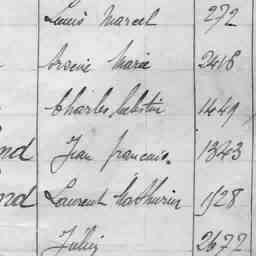 Louis Marcel 272
Marie 2418
Charles Célestin 1449
nd Jean francois. 1343
nd Laurent Mathurin 1528
Julien 2672